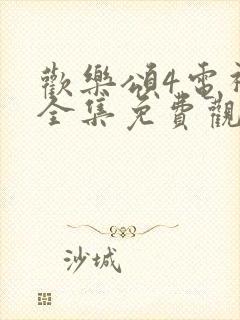 歡樂頌4電視
全集免費觀
沙城